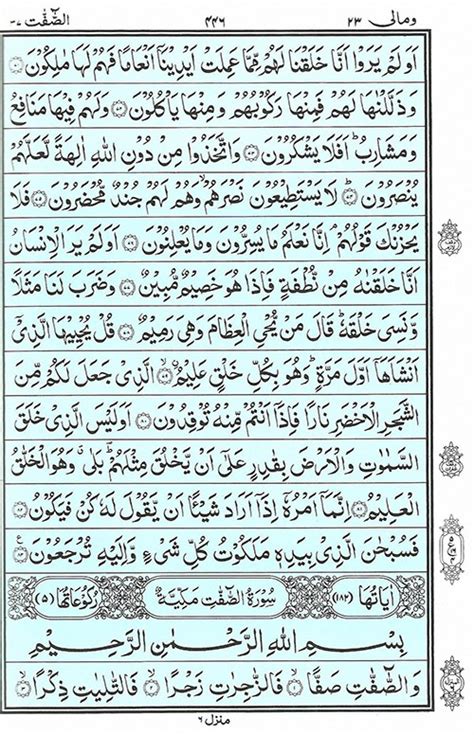 ومالی ۲۳
۴۴۶
الصّٰفّٰت ۳۷
اَوَلَمْ يَرَوْا اَنَّا خَلَقْنَا لَهُمْ مِّمَّا عَمِلَتْ اَيْدِيْنَاۤ اَنْعَامًا فَهُمْ لَهَا مٰلِكُوْنَ ۝
وَذَلَّلْنٰهَا لَهُمْ فَمِنْهَا رَكُوْبُهُمْ وَمِنْهَا يَاْكُلُوْنَ ۝ وَلَهُمْ فِيْهَا مَنَافِعُ
وَمَشَارِبُ ؕ اَفَلَا يَشْكُرُوْنَ ۝ وَاتَّخَذُوْا مِنْ دُوْنِ اللّٰهِ اٰلِهَةً لَّعَلَّهُمْ
يُنْصَرُوْنَ ۝ لَا يَسْتَطِيْعُوْنَ نَصْرَهُمْ وَهُمْ لَهُمْ جُنْدٌ مُّحْضَرُوْنَ ۝ فَلَا
يَحْزُنْكَ قَوْلُهُمْ ۘ اِنَّا نَعْلَمُ مَا يُسِرُّوْنَ وَمَا يُعْلِنُوْنَ ۝ اَوَلَمْ يَرَ الْاِنْسَانُ
اَنَّا خَلَقْنٰهُ مِنْ نُّطْفَةٍ فَاِذَا هُوَ خَصِيْمٌ مُّبِيْنٌ ۝ وَضَرَبَ لَنَا مَثَلًا
وَّنَسِیَ خَلْقَهٗ ؕ قَالَ مَنْ يُّحْیِ الْعِظَامَ وَهِیَ رَمِيْمٌ ۝ قُلْ يُحْيِيْهَا الَّذِیْۤ
اَنْشَاَهَاۤ اَوَّلَ مَرَّةٍ ؕ وَهُوَ بِكُلِّ خَلْقٍ عَلِيْمُ ۝ الَّذِیْ جَعَلَ لَكُمْ مِّنَ
الشَّجَرِ الْاَخْضَرِ نَارًا فَاِذَاۤ اَنْتُمْ مِّنْهُ تُوْقِدُوْنَ ۝ اَوَلَيْسَ الَّذِیْ خَلَقَ
السَّمٰوٰتِ وَالْاَرْضَ بِقٰدِرٍ عَلٰۤی اَنْ يَّخْلُقَ مِثْلَهُمْ ؕ بَلٰی ۗ وَهُوَ الْخَلّٰقُ
الْعَلِيْمُ ۝ اِنَّمَاۤ اَمْرُهٗۤ اِذَاۤ اَرَادَ شَيْئًا اَنْ يَّقُوْلَ لَهٗ كُنْ فَيَكُوْنُ ۝
فَسُبْحٰنَ الَّذِیْ بِيَدِهٖ مَلَكُوْتُ كُلِّ شَیْءٍ وَّاِلَيْهِ تُرْجَعُوْنَ ۝
اٰيَاتُهَا (۱۸۲) سُوْرَةُ الصّٰفّٰتِ مَكِّيَّةٌ (۵) رُكُوْعَاتُهَا
بِسْمِ اللّٰهِ الرَّحْمٰنِ الرَّحِيْمِ
وَالصّٰٓفّٰتِ صَفًّا ۝ فَالزّٰجِرٰتِ زَجْرًا ۝ فَالتّٰلِيٰتِ ذِكْرًا ۝
منزل ۶